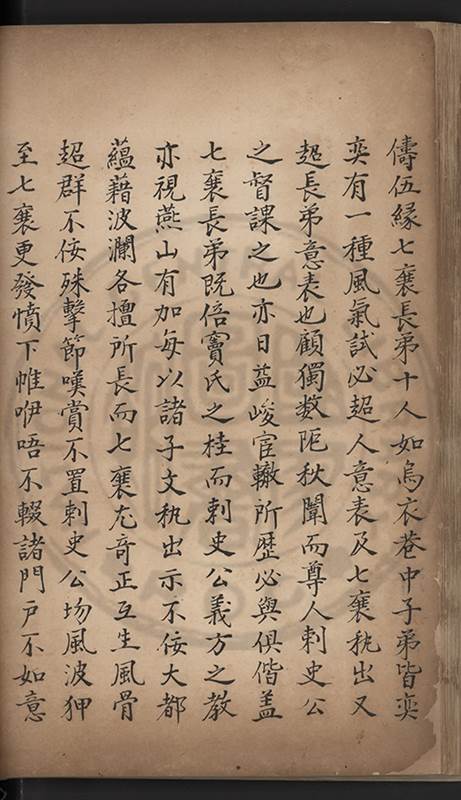 儔伍緣七襄長弟十人如烏衣巷中子弟皆奕
奕有一種風氣試必超人意表及七襄秇出又
超長弟意表也顧獨數阨秋闈而尊人刺史公
之督課之也亦日益峻宦轍所歷必與俱偕蓋
七襄長弟既倍竇氏之桂而刺史公義方之教
亦視燕山有加每以諸子文秇出示不佞大都
蘊藉波瀾各擅所長而七襄尤奇正互生風骨
超群不佞殊擊節嘆賞不置刺史公昜風波狎
至七襄更發憤下帷咿唔不輟諸門戶不如意